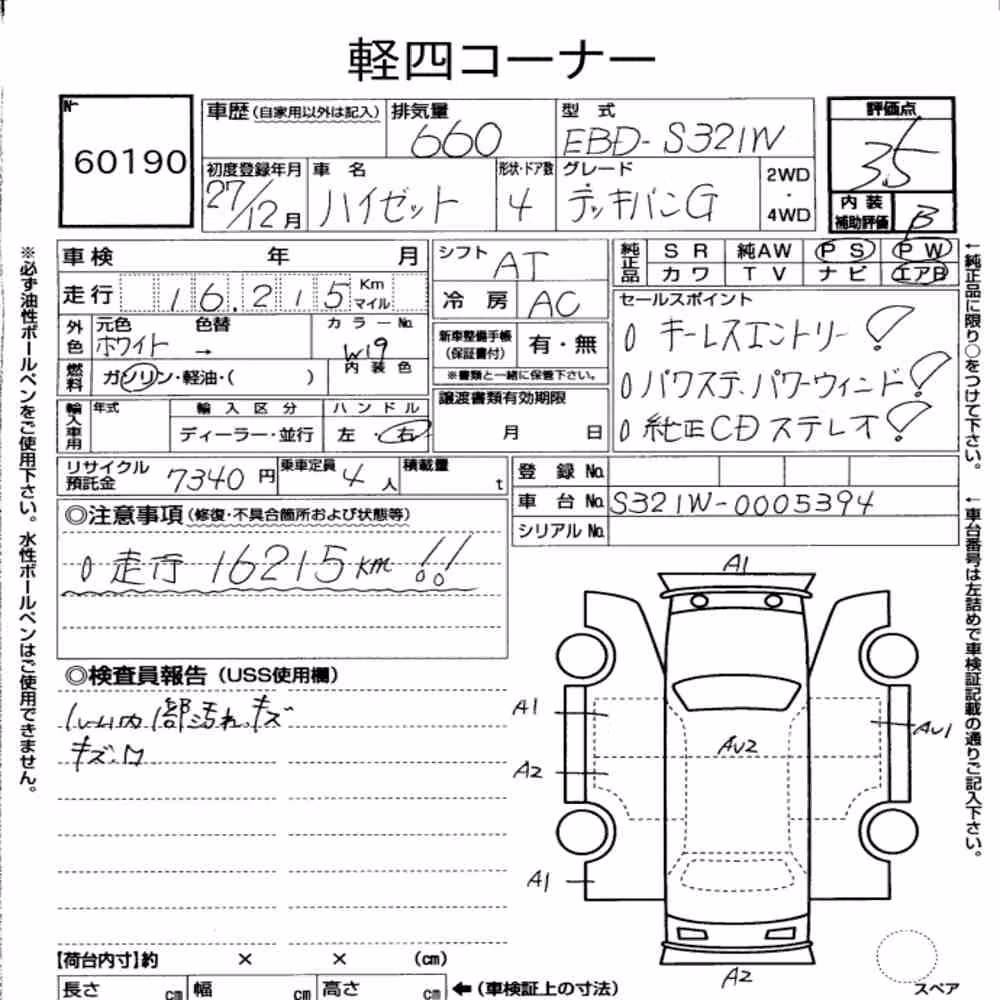 軽四コーナー
No
60190
車歴(自家用以外は記入) 排気量 型式 評価点
660 EBD-S321W 3.5
初度登録年月 車名 形状・ドア数 グレード 2WD・4WD
27/12月 ハイゼット 4 デッキバンG
内装補助評価 B
車検 年 月 シフト AT
純正品 SR 純AW PS PW
カワ TV ナビ エアB
走行 16,215 Km マイル
冷房 AC
セールスポイント
外色 元色 色替 カラーNo.
ホワイト → W19
内装色
新車整備手帳(保証書付) 有・無
※書類と一緒に保管下さい。
0 キーレスエントリー!
0 パワステ、パワーウィンド!
0 純正CDステレオ!
燃料 ガソリン・軽油・( )
譲渡書類有効期限
月 日
輸入車用 年式 輸入区分 ハンドル
ディーラー・並行 左・右
リサイクル預託金 7340円 乗車定員 4人 積載量 t
登録No.
車台No. S321W-0005394
シリアルNo.
◎注意事項(修復・不具合箇所および状態等)
0 走行 16215km!!
◎検査員報告(USS使用欄)
内 部汚れ、キズ
A1
A1
A2
A1
AU2
AU1
A2
スペア
【荷台内寸】約 × × (cm)
長さ cm 幅 cm 高さ cm ←(車検証上の寸法)
※必ず油性ボールペンをご使用下さい。水性ボールペンはご使用できません。
←純正品に限り○をつけて下さい。
←車台番号は左詰めで車検証記載の通りご記入下さい。